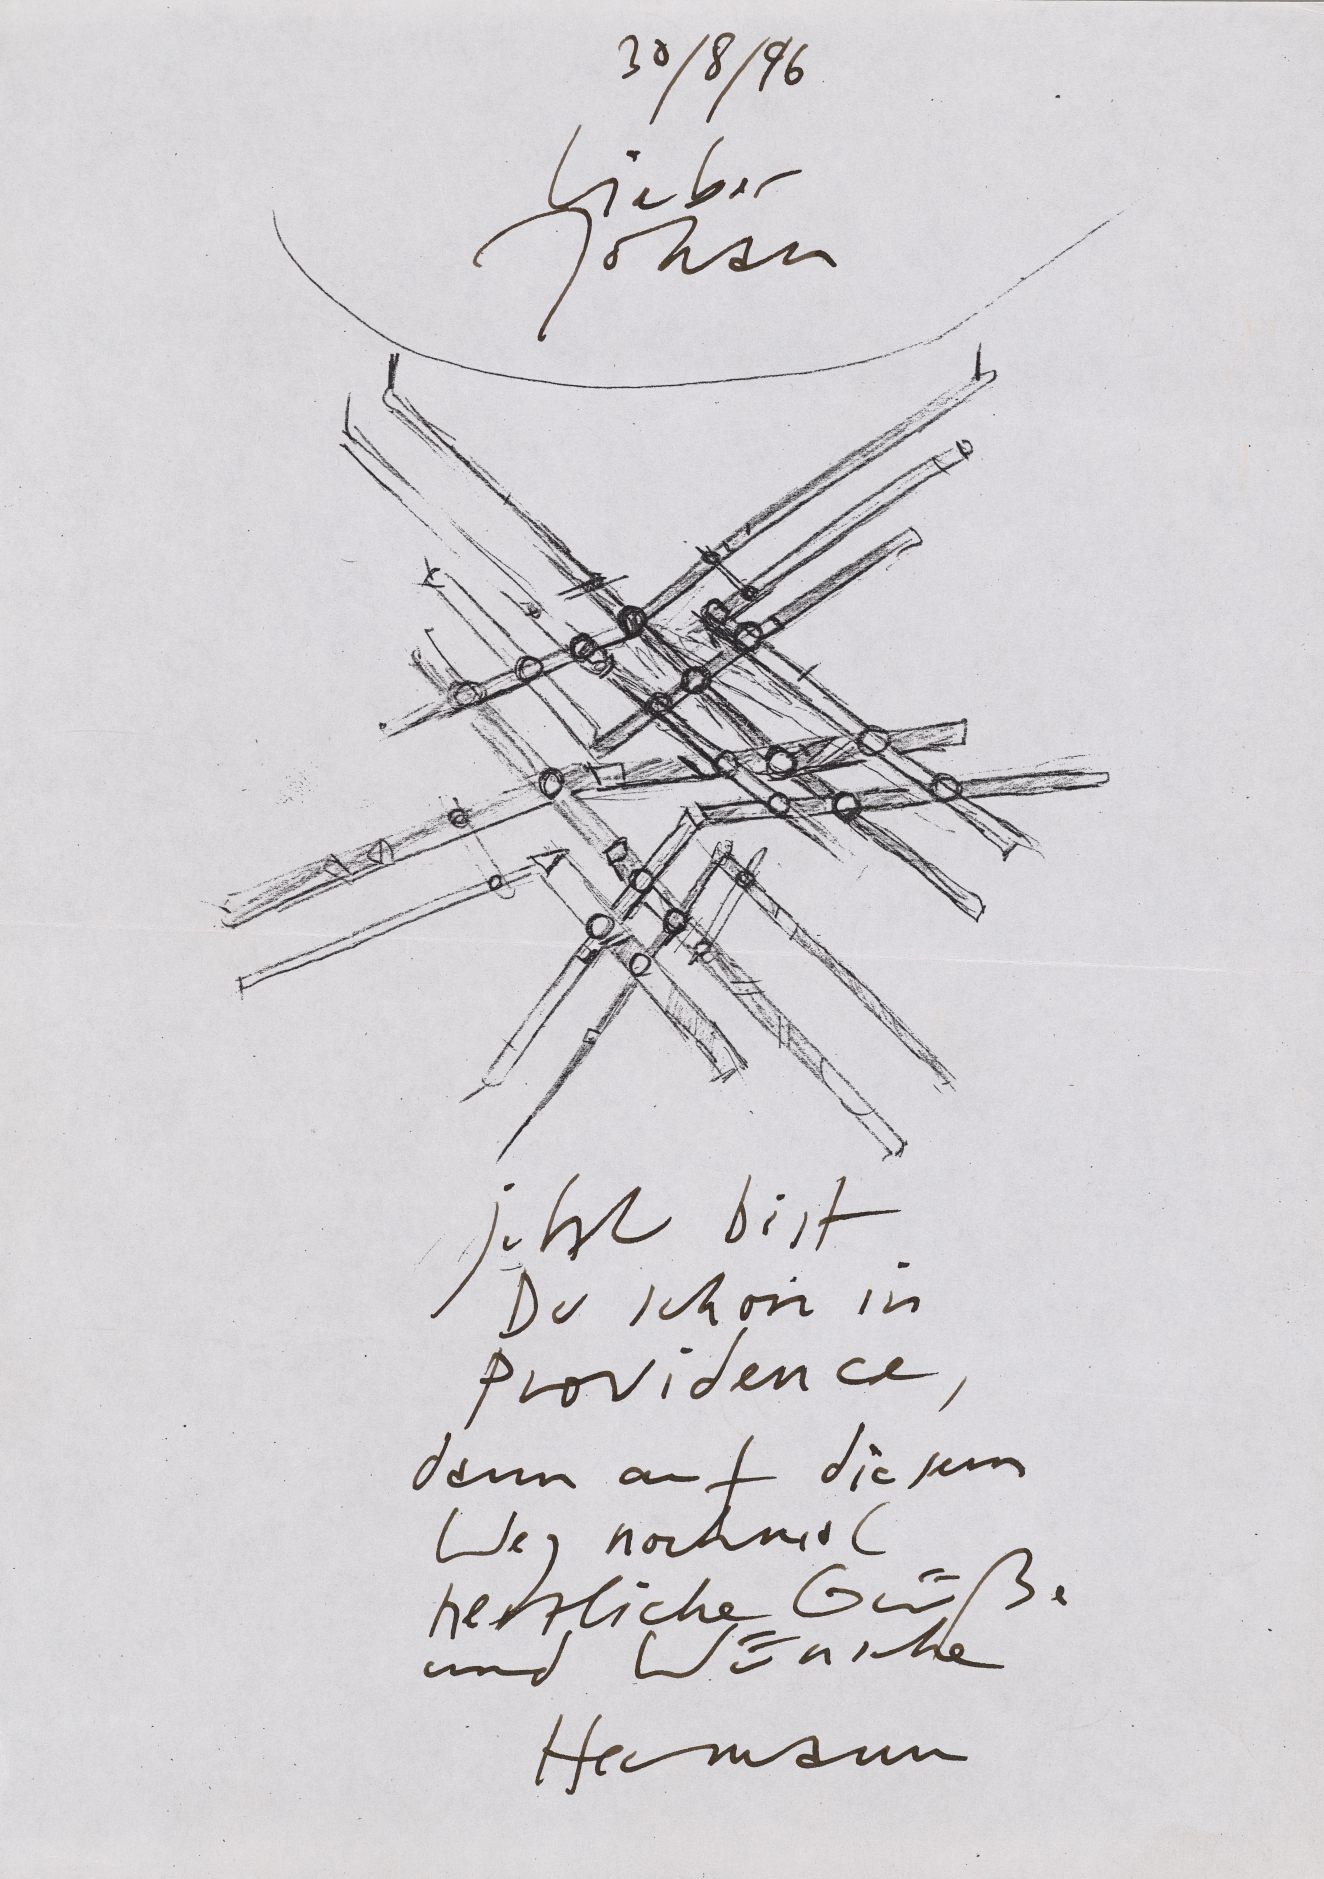 30/8/96
Lieber
Johan
jetzt bist
Du schon in
Providence,
dann auf diesem
Weg nochmal
herzliche Grüße
und Wünsche
Hermann